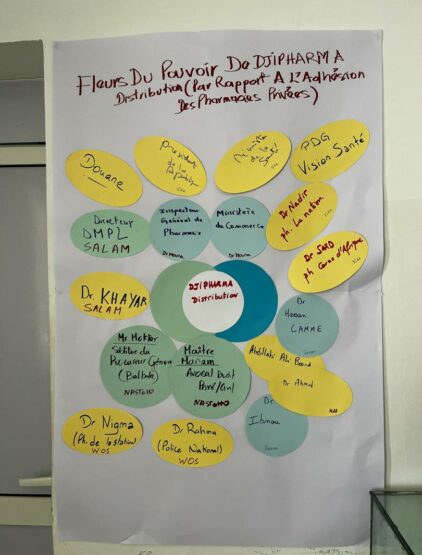 Fleurs Du Pouvoir De DJIPHARMA
Distribution (Par Rapport A L'Adhésion
Des Pharmacies Privées)
Douane
Présidente
de la
PDG
Vision Santé
Directeur
DMPL
SALAM
Inspecteur
Général de
Pharmacie
Dr Mouna
Ministère
du Commerce
Dr Mouna
Dr Nadir
ph. La nation
Dr SAID
ph Corne d'Afrique
Dr. KHAYAR
SALAM
DJIPHARMA
Distribution
Dr
Hassan
CAMME
Mr Mokhtar
Substitut du
Procureur Général
NASTEHO
Maître
Mariam
Avocat Droit
Privé/Civil
NASTEHO
Abdillahi Ali
Dr Ahmed
Dr
Dr Nigma
(Ph. de la station)
WOS
Dr Rahma
(Police National)
WOS